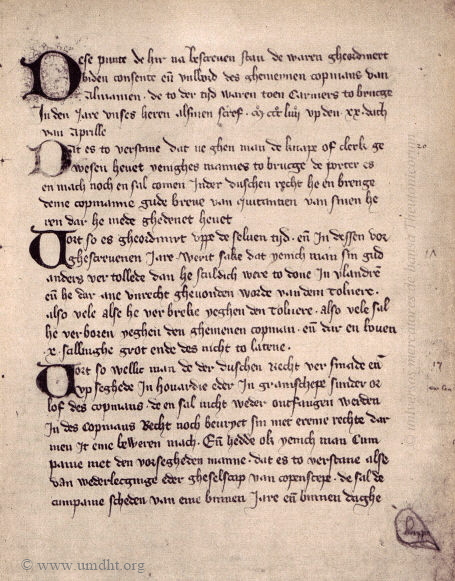 Dese punte de hir na bescreven stan de waren gheordinert
biden consente eñ vulbord des ghemeynen copmans van
Almanien · de to der tijd waren toen Carmers to brucge
In den Jare unses heren alsmen scref · M CCC liiij up den · xx · dach
van Aprille
Dat es to verstane dat ne ghen man de knape of clerk ge
wesen hevet yenighes mannes to brucge de porter es
en mach noch en sal comen Inder duschen recht he en brenge
deme copmanne gude breve van quitantien van sinen he
ren dar he mede ghedenet hevet
Vort so es gheordinirt uppe de selven tijd · eñ In dessen vor
ghescrevenen Jare · Werit sake dat yemich man sin gud
anders vertollede dan he sculdich were to done In vlandrē
eñ he dar ane unrecht ghevonden worde van dem tolnere ·
also vele alse he verbreke yeghen den tolnere · also vele sal
he verboren yeghen den ghemenen copman · eñ dar en boven
· x · scellinghe grot ende des nicht to latene ·
Vort so welic man de der duschen Recht versmade eñ
up seghede In hovardie eder In gramschepe sunder or
lof des copmans · de en sal nicht weder ontfangen werden
In des copmans Recht noch bevryet sin met erme rechte dar
men it eme beweren mach · Eñ hedde ok yenich man Cum
panie met den vorseghden manne · dat es to verstane alse
van wederlecginge eder gheselscap van copenscepe · de sal de
cumpanie scheden van eme binnen Jare eñ binnen daghe
© www.umdht.org